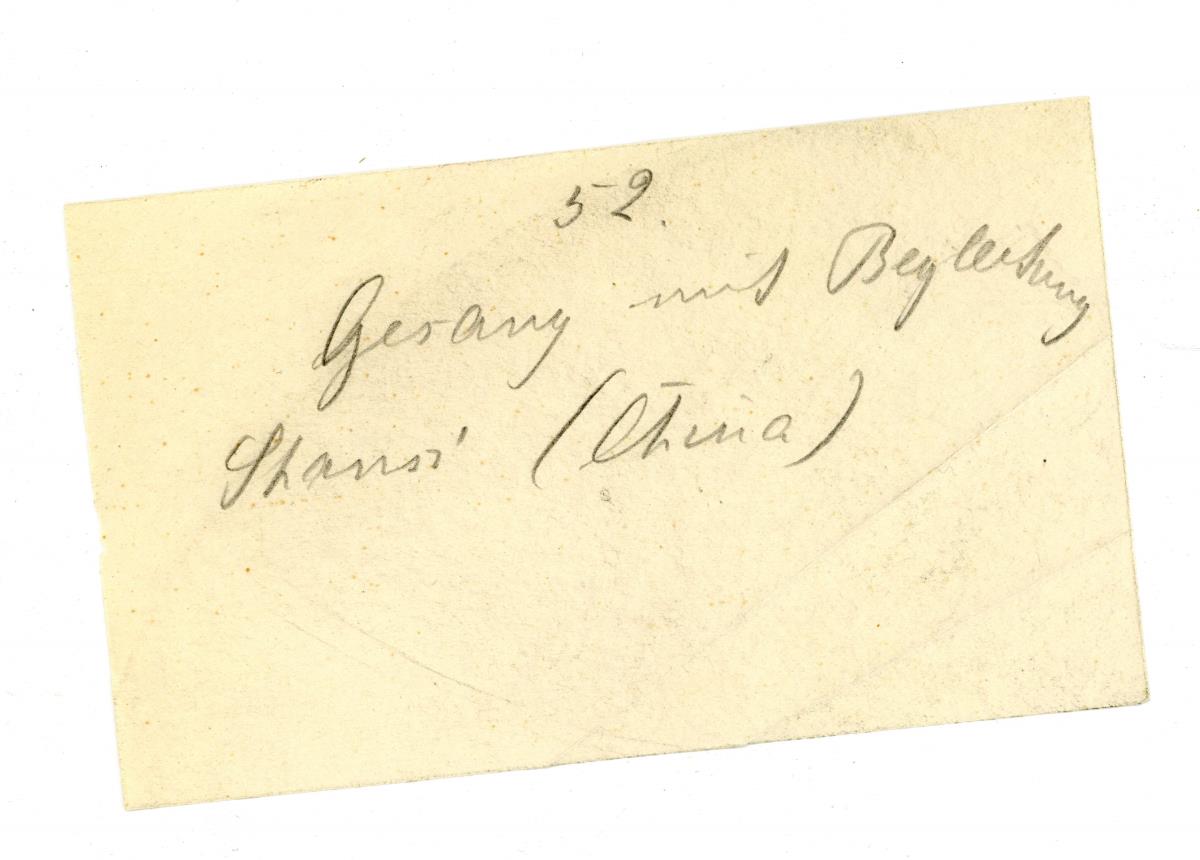 52.
Gesang mit Begleitung
Shansi (China)